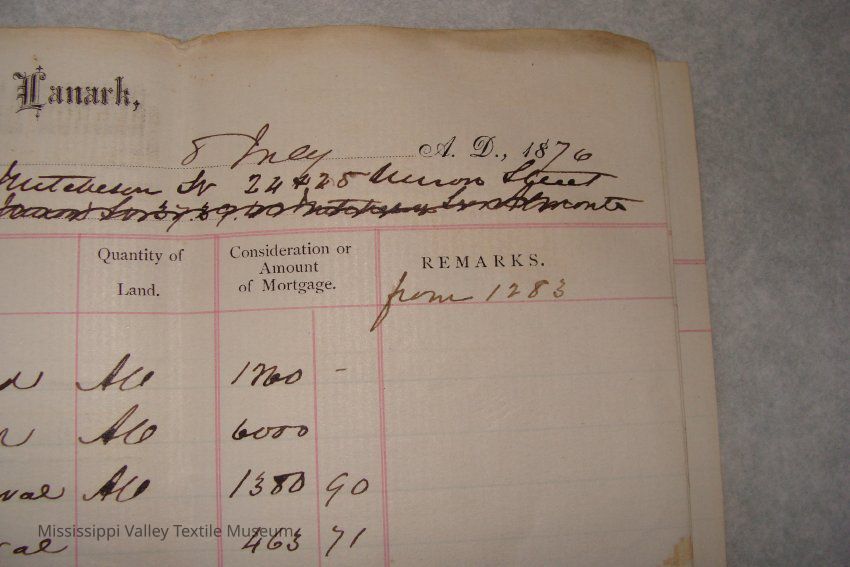 Lanark,
8 July A. D., 1876
Mutcheson Sr 24 & 25 Union Street
Almonte
Quantity of Land.
Consideration or Amount of Mortgage.
REMARKS.
from 1283
All 1760 -
All 6000
All 1380 90
463 71
Mississippi Valley Textile Museum